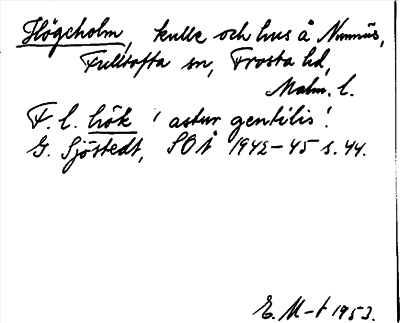 Högeholm, kulle och hus å Nunnäs,
Fulltofta sn, Frosta hd,
Malm. l.
F. l. hök 'astur gentilis'.
G. Sjöstedt, SOÅ 1942-45 s. 44.
E. M-t 1953.